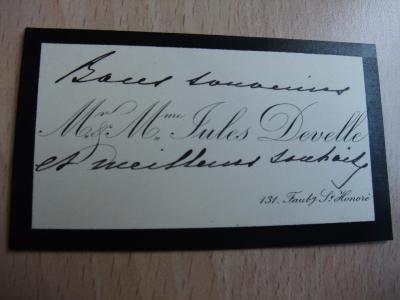 Bons souvenirs
Mr & Mme Jules Develle
et meilleurs souhaits
131. Faubg St Honoré